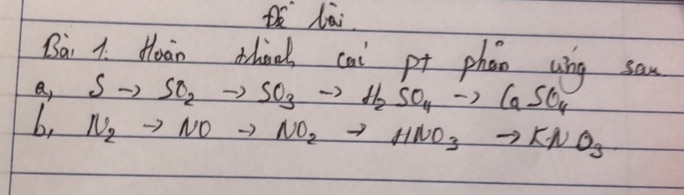 Đề bài
Bài 1. Hoàn thành các pt phản ứng sau
a, S → SO₂ → SO₃ → H₂SO₄ → CaSO₄
b, N₂ → NO → NO₂ → HNO₃ → KNO₃